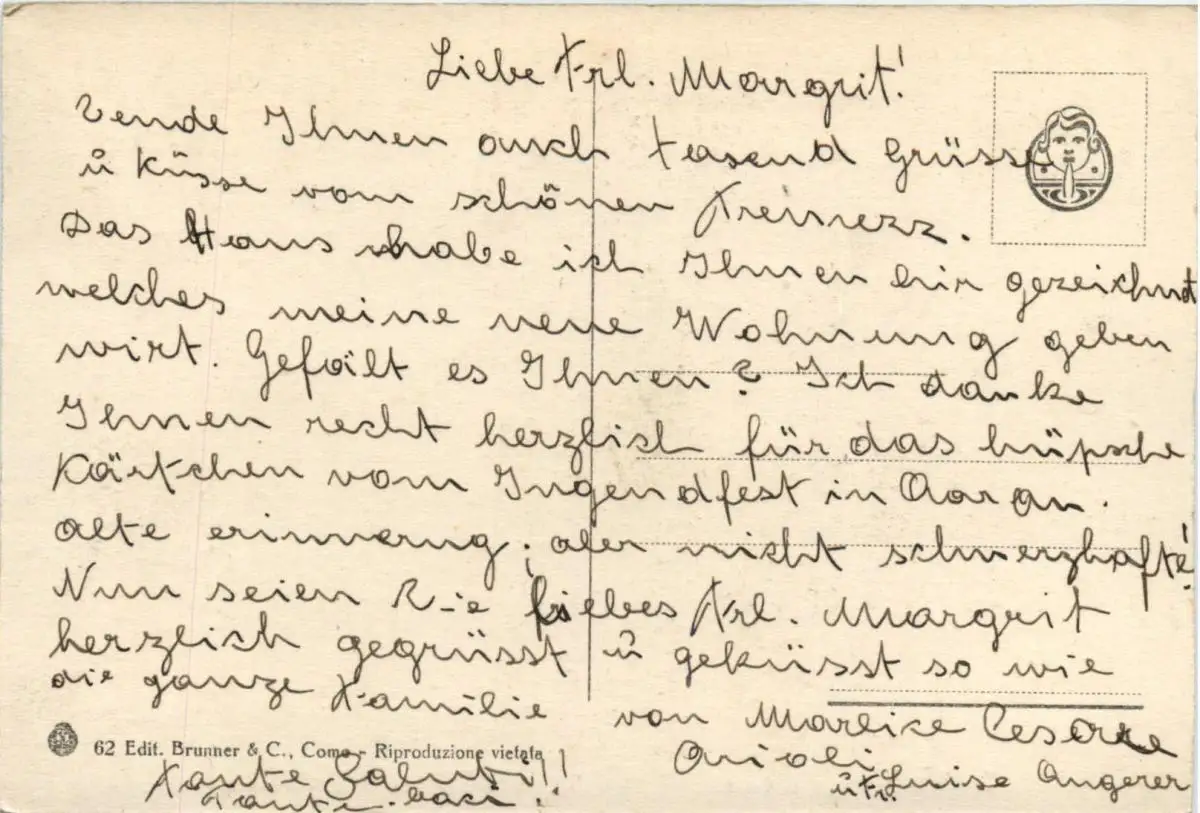 Liebe Frl. Margrit!
Sende Ihnen auch tasend Grüsse
u Küsse vom schönen Tremezz.
Das Haus habe ich Ihnen hir gezeichnet
welches meine neue Wohnung geben
wirt. Gefält es Ihnen? Ich danke
Ihnen recht herzlich für das hüpsche
Kärtchen vom Jugendfest in Aarau.
alte erinnerug, aber nicht schmerzhafte!
Nun seien Sie liebes Frl. Margrit
herzlich gegrüsst u geküsst so wie
die ganze Familie von Cesare
62 Edit. Brunner & C., Como - Riproduzione vietata
Tante Saluti!!
u Fr. Luise Angerer
Tante baci!